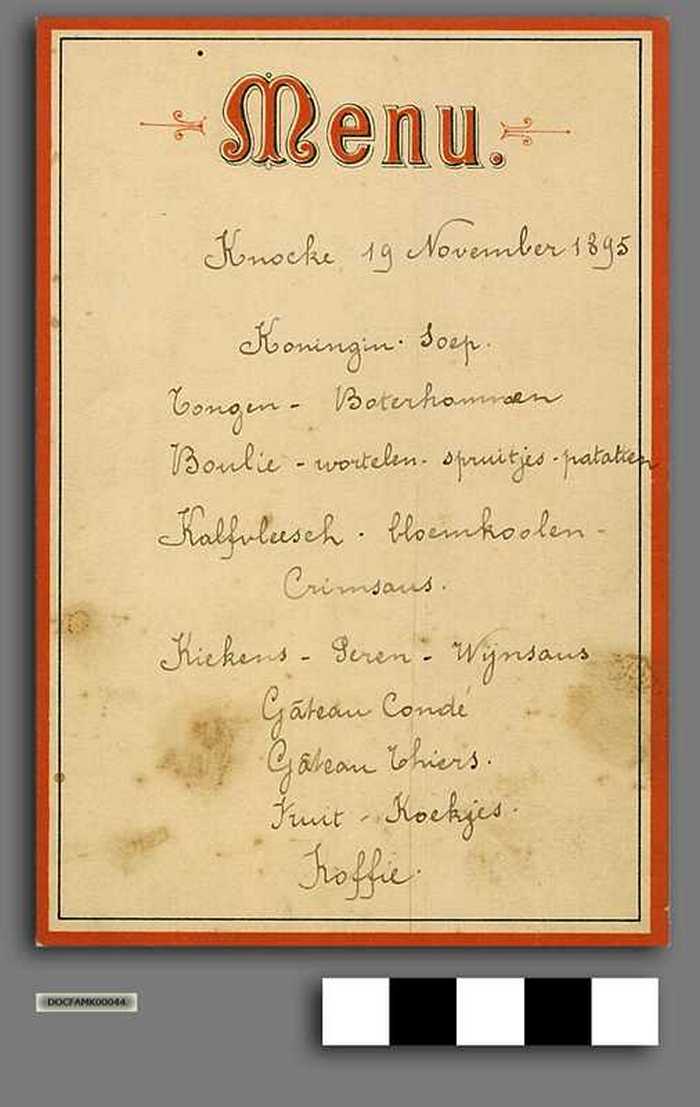 Menu.
Knocke 19 November 1895
Koningin. Soep.
Tongen - Boterhammen
Boulie - wortelen - spruitjes - patatten
Kalfvleesch . bloemkoolen -
Crimsaus.
Kiekens - Peren - Wijnsaus
Gâteau Condé
Gâteau Thiers.
Fruit - Koekjes.
Koffie.
DOCFAMK00044